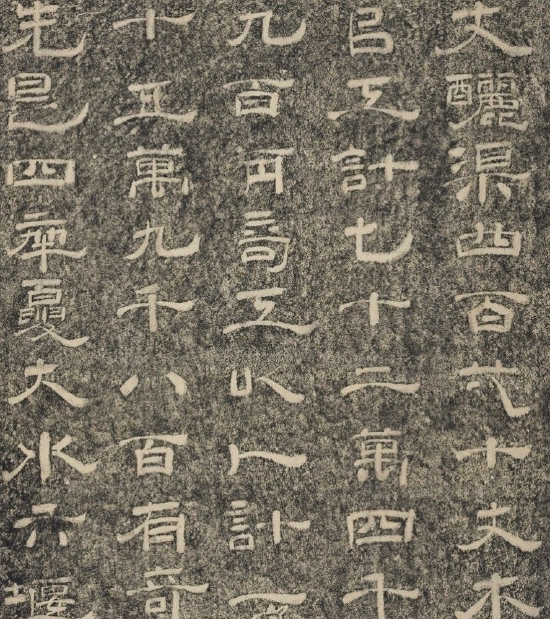 丈釃渠凹百六十丈木
石工計七十二萬四千
九百再奇工以人計一
十五萬九千八百有奇
先是四年夏大水六堰